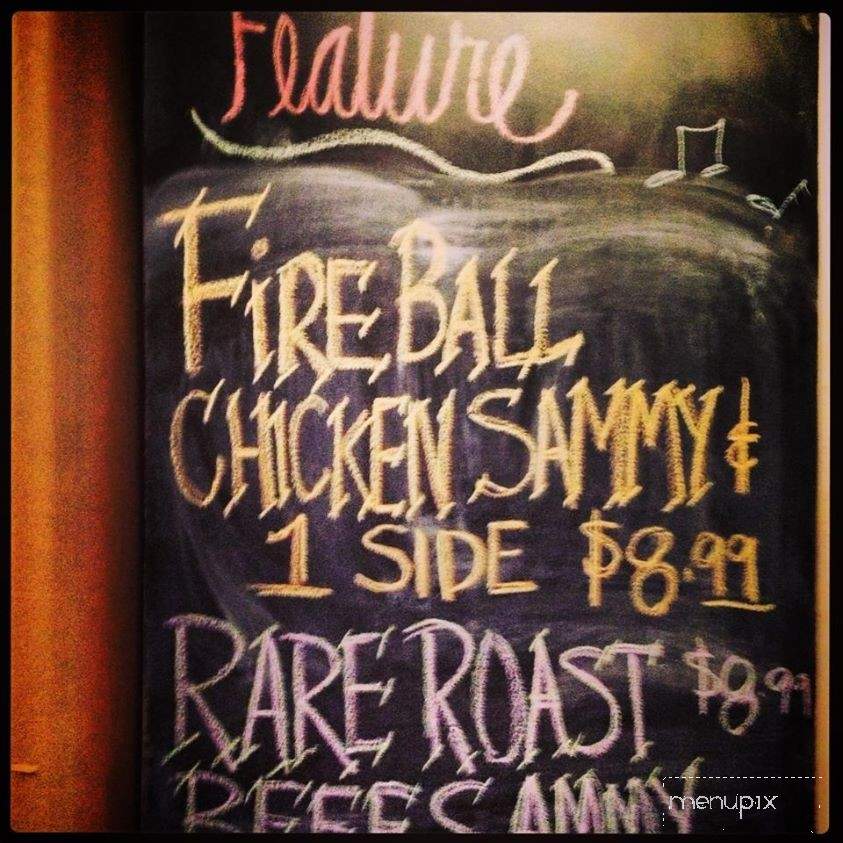 Feature
FIRE BALL
CHICKEN SAMMY &
1 SIDE $8.99
RARE ROAST $8.99
BEEF SAMMY
menupix